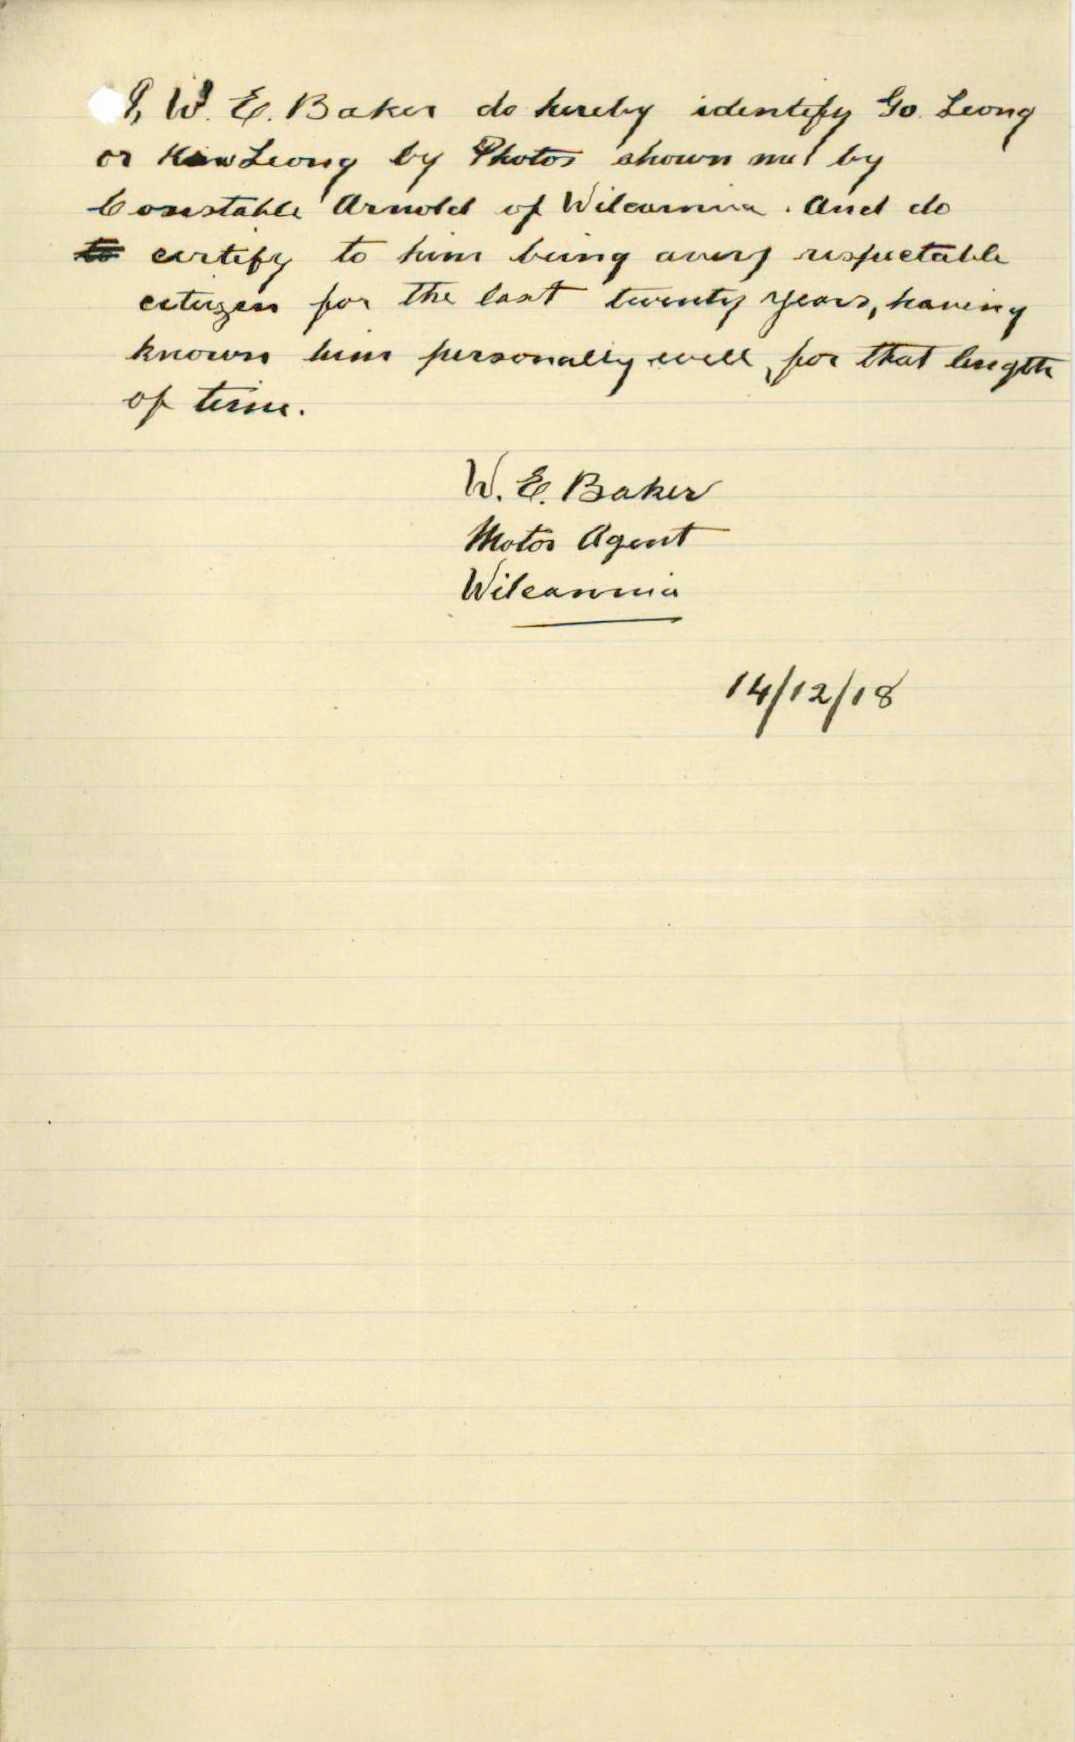 I, W. E. Baker do hereby identify Go Leong
or Kow Leong by Photos shown me by
Constable Arnold of Wilcannia. And do
to certify to him being a very respectable
citizen for the last twenty years, having
known him personally well, for that length
of time.
W. E. Baker
Motor Agent
Wilcannia
14/12/18